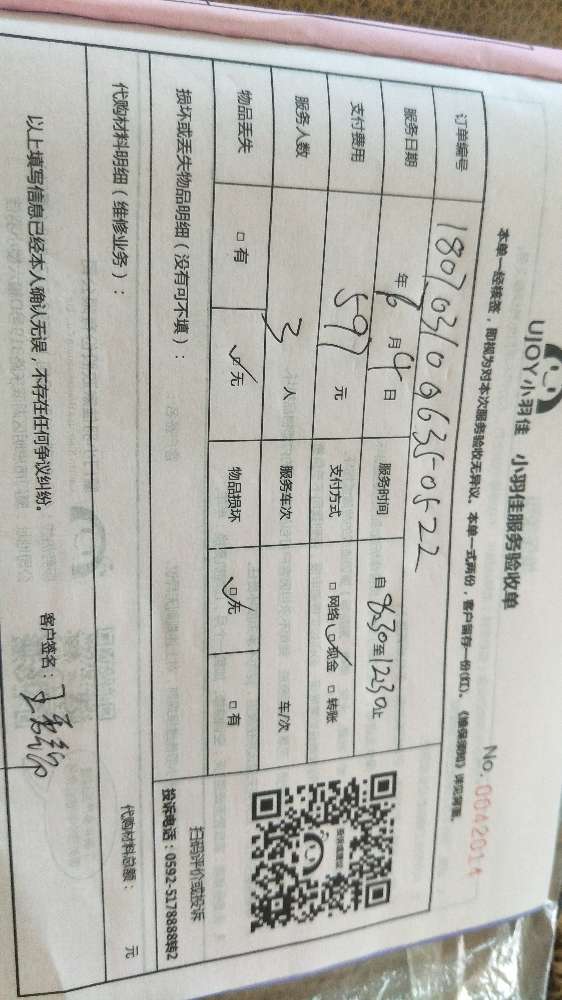 UJOY小羽佳 小羽佳服务验收单
No. 0042014
本单一经核签，即视为对本次服务验收无异议。本单一式两份，客户留存一份(红)。《维保须知》详见背面。
订单编号 18070310063505-22
服务日期 年6月4日 服务时间 自8:30至12:30止
支付费用 597元 支付方式 □网络 ☑现金 □转账
服务人数 3人 服务车次 车/次
物品丢失 □有 ☑无 物品损坏 ☑无 □有
损坏或丢失物品明细（没有可不填）：
扫码评价或投诉
投诉电话：0592-5178888转2
代购材料明细（维修业务）： 代购材料总额： 元
以上填写信息已经本人确认无误，不存在任何争议纠纷。 客户签名：